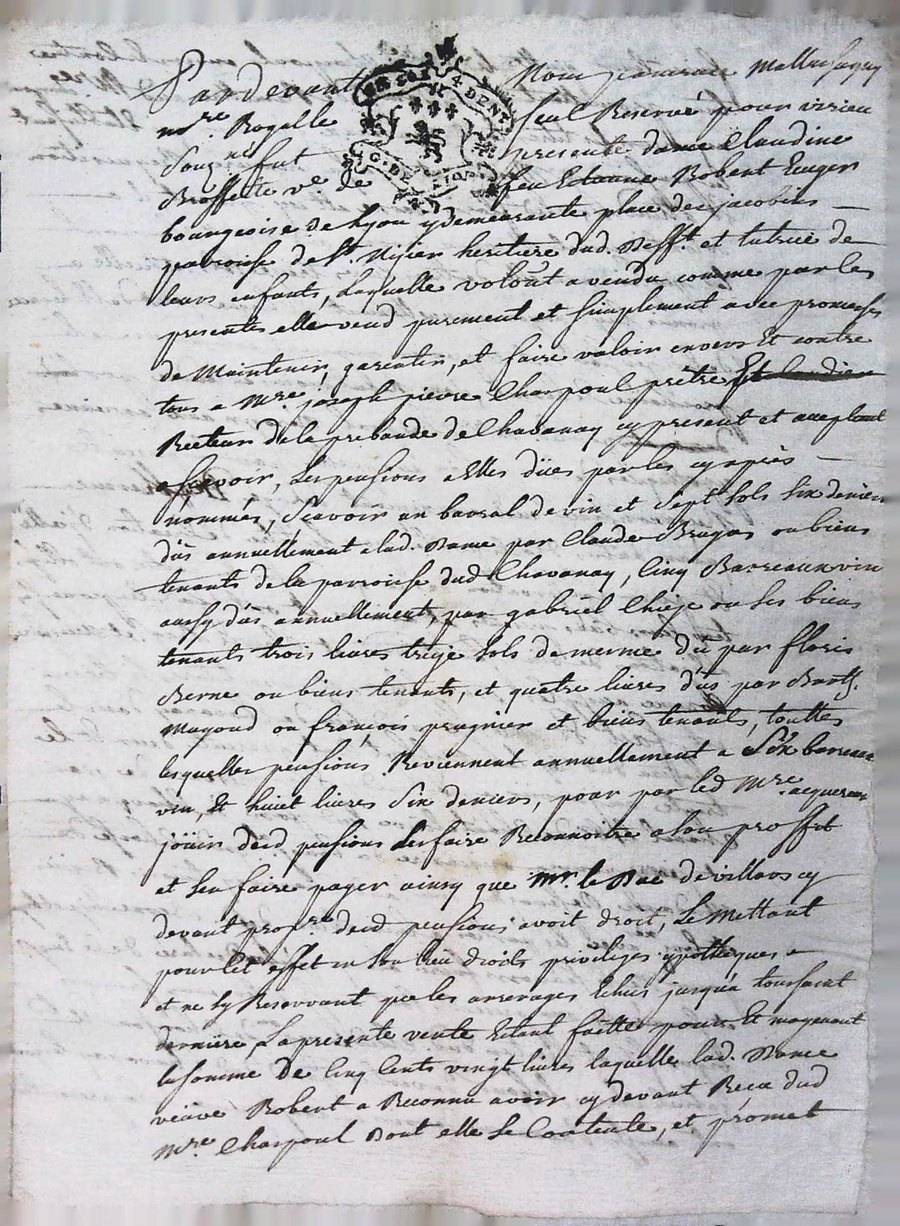 Pardevant
mre. Bogelle
Souz.né fut seul Reservé pour
presente dame Claudine
Brossette ve. de feu Etienne Robert
bourgeoise de Lyon y demeurante place des jacobins
parroisse de St. Nizier heritiere dud. Deff.t et tutrice de
leurs enfants, Laquelle a vendu comme par les
presentes elle vend purement et simplement avec promesses
de Maintenir, garentir, et faire valoir envers Et contre
tous a Mre. joseph pierre Charpoul prêtre
Recteur de la prebande de Chavanay cy present et acceptant
asscavoir, Les pensions a Elles dües par les cyaprès
nommés, Scavoir un barral de vin et Sept sols six deniers
dûs annuellement a lad. Dame par Claude ou biens
tenants de la parroisse dud. Chavanay, Cinq Barreaux vin
aussy dûs annuellement, par gabriël ou ses biens
tenants trois livres treize sols de mesme dû par floris
Berne ou biens tenants, et quatre livres dûs par Barth.
Magoud ou françois pragnier et biens tenants, touttes
lesquelles pensions Reviennent annuellement a Six barreaux
vin, Et huict livres Six deniers, pour par led Mre. acquereur
joüir desd pensions Les faire Reconnoitre a son proffit
et s'en faire payer ainsy que Mr. le Duc de villars cy
devant propre. desd pensions avoit droit, Le Mettant
pour cet effet en son lieu droits privileges ypotheques
et ne sy Reservant que les arrerages Echus jusqu'a toussaint
derniere, La presente vente Etant faitte pour Et moyenant
la somme de Cinq Cents vingt livres laquelle lad. Dame
veuve Robert a Reconnu avoir cy devant Receu dud
Mre. Charpoul Dont elle se Contente, et promet